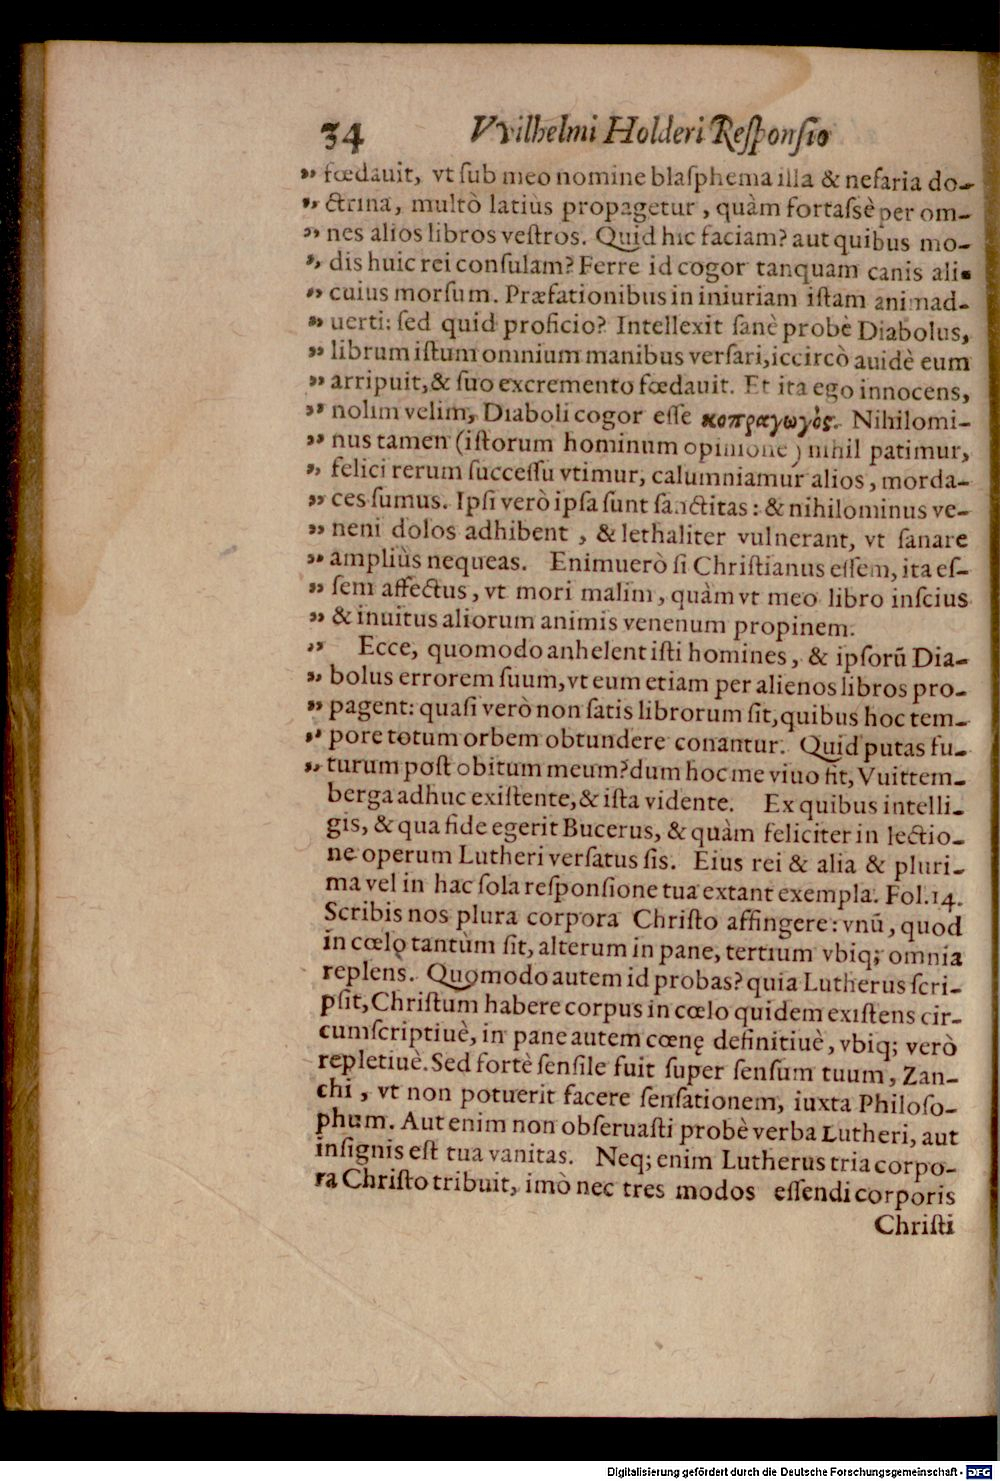 34 VVilhelmi Holderi Reſponſio
„ fœdauit, vt ſub meo nomine blaſphema illa & nefaria do-
„ ctrina, multò latiùs propagetur, quàm fortaſsè per om-
„ nes alios libros veſtros. Quid hic faciam? aut quibus mo-
„ dis huic rei conſulam? Ferre id cogor tanquam canis ali-
„ cuius morſum. Præfationibus in iniuriam iſtam animad-
„ uerti: ſed quid proficio? Intellexit ſanè probè Diabolus,
„ librum iſtum omnium manibus verſari, iccircò auidè eum
„ arripuit, & ſuo excremento fœdauit. Et ita ego innocens,
„ nolim velim, Diaboli cogor eſſe κοπραγωγὸς. Nihilomi-
„ nus tamen (iſtorum hominum opinione) nihil patimur,
„ felici rerum ſucceſſu vtimur, calumniamur alios, morda-
„ ces ſumus. Ipſi verò ipſa ſunt ſanctitas: & nihilominus ve-
„ neni dolos adhibent, & lethaliter vulnerant, vt ſanare
„ ampliùs nequeas. Enimuerò ſi Chriſtianus eſſem, ita eſ-
„ ſem affectus, vt mori malim, quàm vt meo libro inſcius
„ & inuitus aliorum animis venenum propinem.
„ Ecce, quomodo anhelent iſti homines, & ipſorū Dia-
„ bolus errorem ſuum, vt eum etiam per alienos libros pro-
„ pagent: quaſi verò non ſatis librorum ſit, quibus hoc tem-
„ pore totum orbem obtundere conantur. Quid putas fu-
„ turum poſt obitum meum? dum hoc me viuo fit, Vuittem-
berga adhuc exiſtente, & iſta vidente. Ex quibus intelli-
gis, & qua fide egerit Bucerus, & quàm feliciter in lectio-
ne operum Lutheri verſatus ſis. Eius rei & alia & pluri-
ma vel in hac ſola reſponſione tua extant exempla. Fol. 14.
Scribis nos plura corpora Chriſto affingere: vnū, quod
in cœlo tantùm ſit, alterum in pane, tertium vbiq; omnia
replens. Quomodo autem id probas? quia Lutherus ſcri-
pſit, Chriſtum habere corpus in cœlo quidem exiſtens cir-
cumſcriptiuè, in pane autem cœnę definitiuè, vbiq; verò
repletiuè. Sed fortè ſenſile fuit ſuper ſenſum tuum, Zan-
chi, vt non potuerit facere ſenſationem, iuxta Philoſo-
phum. Aut enim non obſeruaſti probè verba Lutheri, aut
inſignis eſt tua vanitas. Neq; enim Lutherus tria corpo-
ra Chriſto tribuit, imò nec tres modos eſſendi corporis
Chriſti
Digitalisierung gefördert durch die Deutsche Forschungsgemeinschaft - DFG